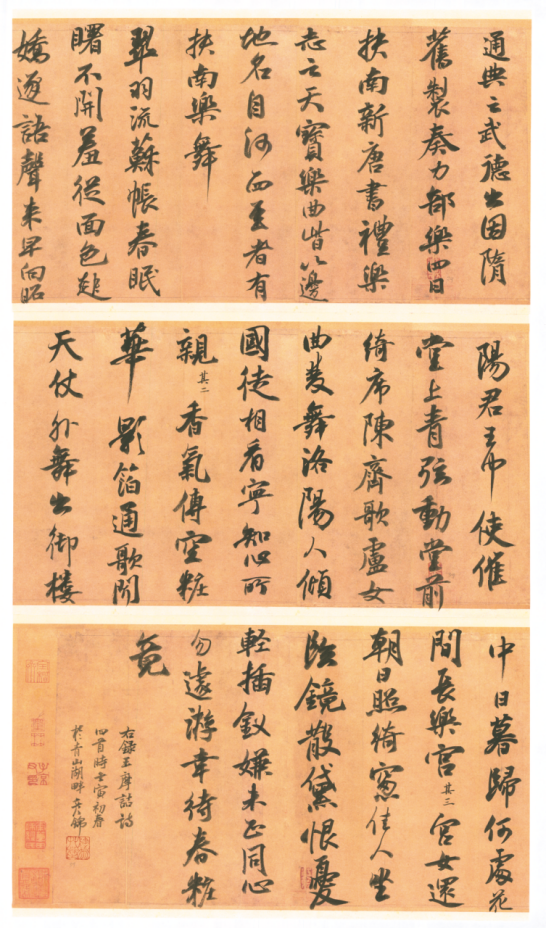 通典云武德出因隋
舊製奏九部樂四曰
扶南新唐書禮樂
志云天寶樂曲皆以邊
地名自河西至者有
扶南樂舞
翠羽流蘇帳春眠
曙不開羞從面色起
嬌逐語聲來早向昭
陽君王中使催
堂上青弦動堂前
綺席陳齊歌盧女
曲雙舞洛陽人傾
國徒相看寧知心所
親其二香氣傳空粧
華影箔通歌聞
天仗外舞出御樓
中日暮歸何處花
間長樂宮其三宮女還
朝日照綺窓佳人坐
臨鏡散黛恨憂
輕插釵嫌未正同心
勿遽游幸待春粧
竟
右錄王摩詰詩
四首時壬寅初春
於青山湖畔